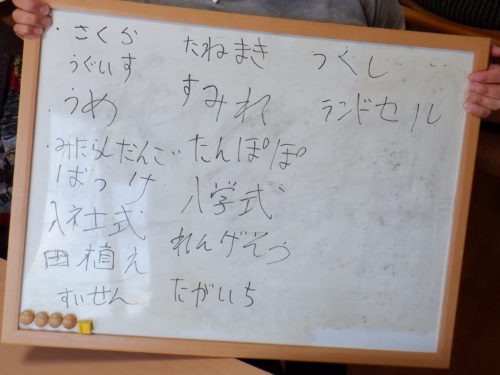 ・さくら
うぐいす
・うめ
・みたらしだんご
ばっけ
入社式
田植え
すいせん
たねまき
すみれ
たんぽぽ
入学式
れんげそう
たがいち
つくし
ランドセル